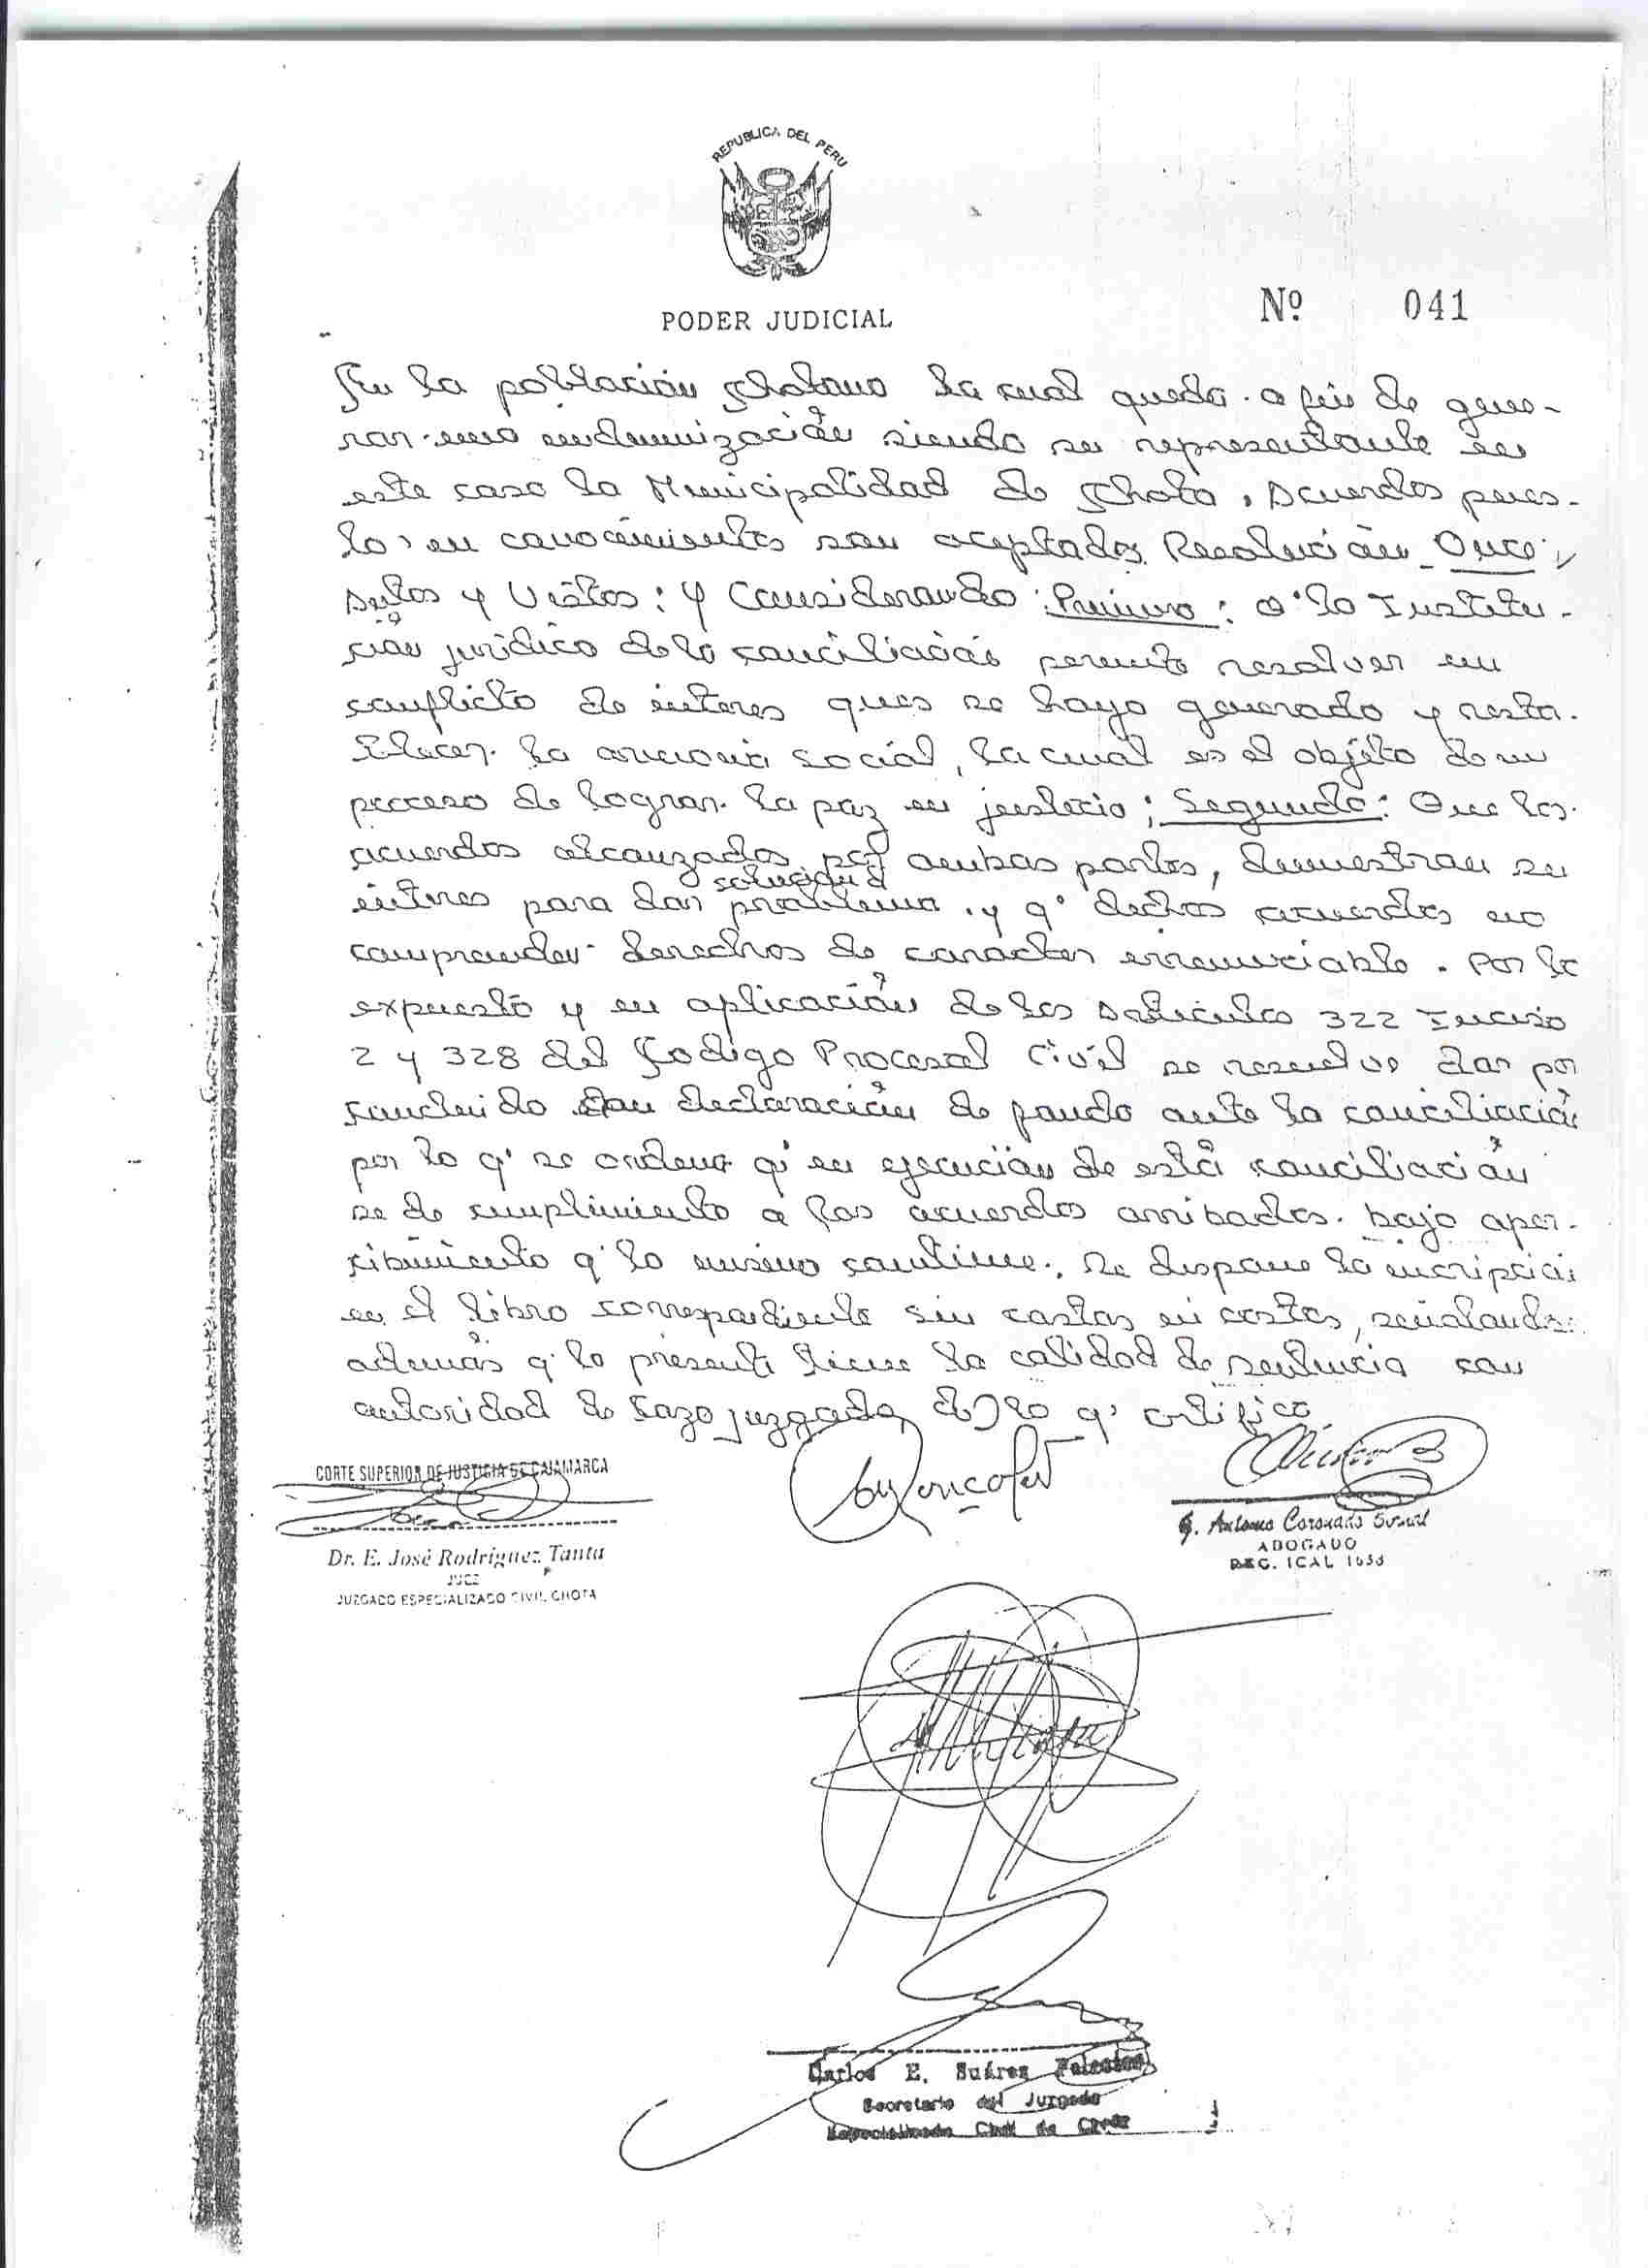 REPUBLICA DEL PERU
PODER JUDICIAL
Nº 041
En la población Chotano la cual queda a fin de gene-
rar una indemnización siendo su representante en
este caso la Municipalidad de Chota, Acuerdos pues-
to en conocimiento son aceptados Resolución Once;
Autos y Vistos: Y Considerando: Primero: q' la Institu-
ción jurídica de la conciliación permite resolver un
conflicto de interes ques se haya generado y resta-
blecer la armonia social, la cual es el objeto de un
proceso de lograr la paz en justicia; Segundo: Que los
acuerdos alcanzados por ambas partes, demuestran su
interes para dar solución a problema y q' dichos acuerdos no
comprenden derechos de caracter irrenunciable. Por lo
expuesto y en aplicación de los Articulos 322 Inciso
2 y 328 del Codigo Procesal Civil se resuelve dar por
concluido con declaración de fondo ante la conciliación
por lo q' se ordena q' en ejecución de está conciliación
se de cumplimiento a los acuerdos arribados bajo aper-
cibimiento q' lo mismo contiene. Se dispone la incripción
en el libro correspondiente sin costas ni costos, señalando
además q' la presente tiene la calidad de sentencia con
autoridad de Cazo juzgada, de lo q' certifico
CORTE SUPERIOR DE JUSTICIA DE CAJAMARCA
Dr. E. José Rodríguez Tanta
JUEZ
JUZGADO ESPECIALIZADO CIVIL CHOTA
G. Antonio Coronado
ABOGADO
REG. ICAL 1633
Carlos E. Suárez
Secretario del Juzgado
Especializado Civil de Chota